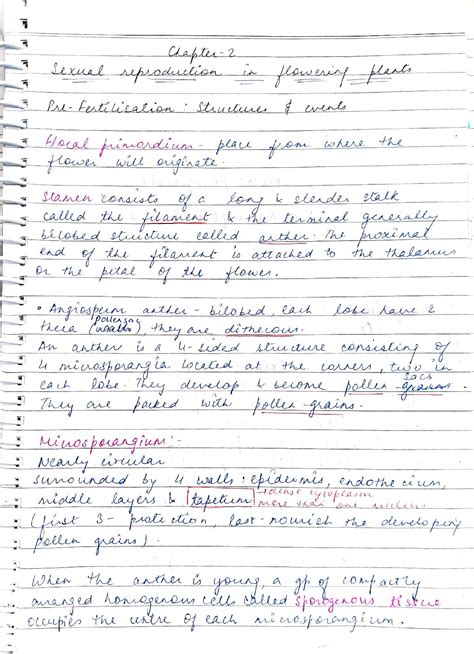 Chapter-2
Sexual reproduction in flowering plants
Pre-Fertilisation : Structures & events
Floral primordium - place from where the
flower will originate.
Stamen consists of a long & slender stalk
called the filament & the terminal generally
bilobed structure called anther. The proximal
end of the filament is attached to the thalamus
or the petal of the flower.
• Angiosperm anther - bilobed, each lobe have 2
pollensac
theca (), they are dithecous.
An anther is a 4-sided structure consisting of
4 microsporangia located at the corners, two in
each lobe. They develop & become pollen sacs
They are packed with pollen-grains.
Microsporangium :-
Nearly circular
surrounded by 4 walls : epidermis, endothecium,
middle layers & tapetum → dense cytoplasm
more than one nucleus
(first 3 - protection, last - nourish the developing
pollen grains).
When the anther is young, a gp of compactly
arranged homogenous cells called Sporogenous tissue
occupies the centre of each microsporangium.